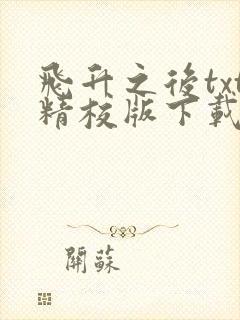 飛升之後txt
精校版下載
開蘇